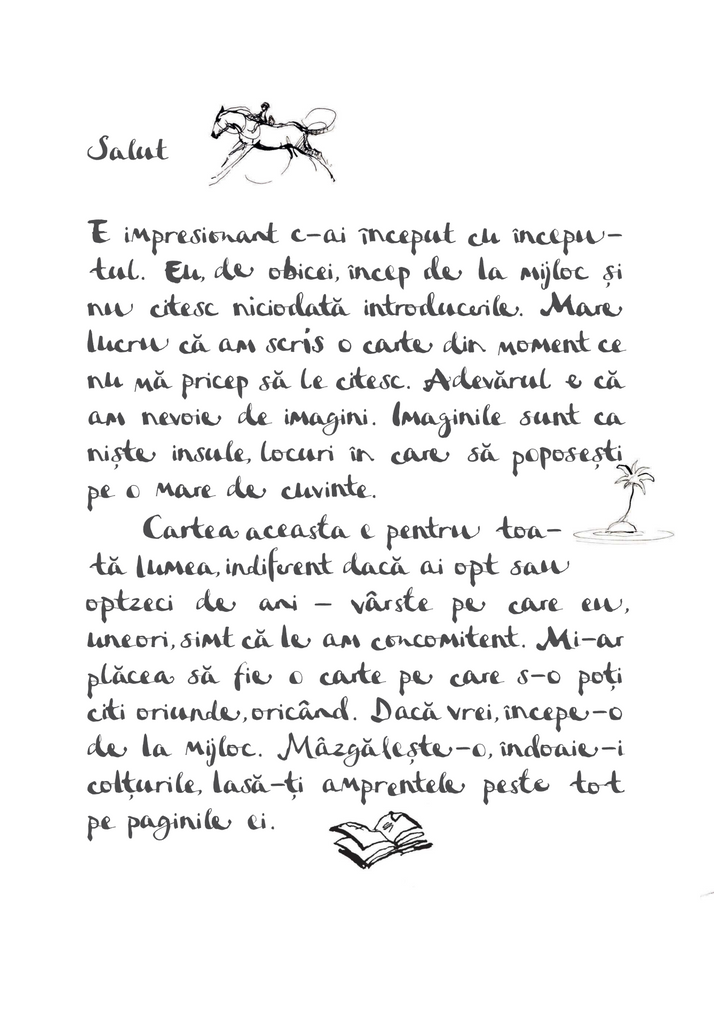 Salut
E impresionant c-ai început cu începu-
tul. Eu, de obicei, încep de la mijloc și
nu citesc niciodată introducerile. Mare
lucru că am scris o carte din moment ce
nu mă pricep să le citesc. Adevărul e că
am nevoie de imagini. Imaginile sunt ca
niște insule, locuri în care să poposești
pe o mare de cuvinte.
Cartea aceasta e pentru toa-
tă lumea, indiferent dacă ai opt sau
optzeci de ani – vârste pe care eu,
uneori, simt că le am concomitent. Mi-ar
plăcea să fie o carte pe care s-o poți
citi oriunde, oricând. Dacă vrei, începe-o
de la mijloc. Mâzgălește-o, îndoaie-i
colțurile, lasă-ți amprentele peste tot
pe paginile ei.